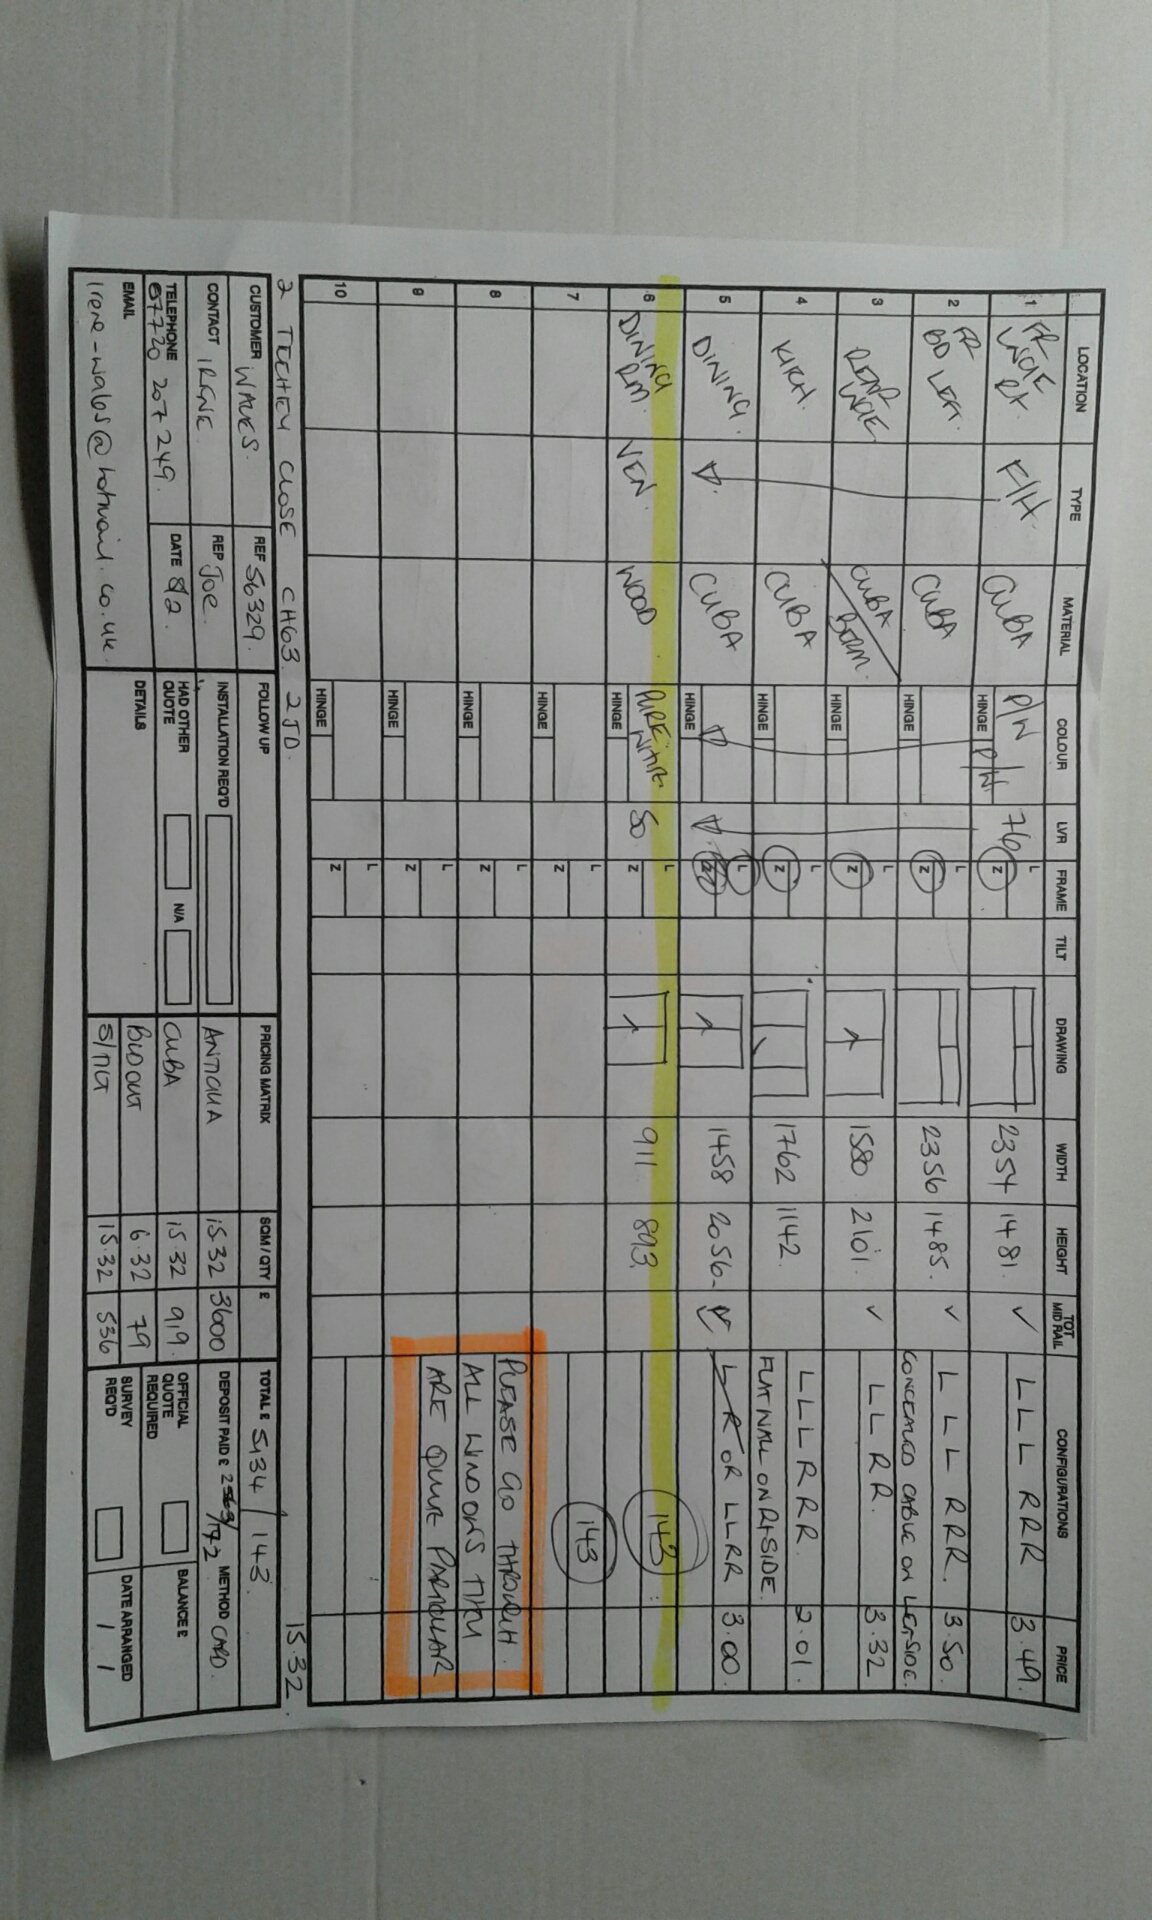 LOCATION TYPE MATERIAL COLOUR LVR FRAME TILT DRAWING WIDTH HEIGHT TOT MID RAIL CONFIGURATIONS PRICE
1 FR F/H CUBA P/W 76 L Z 2354 1481 ✓ LLL RRR 3.49
HINGE P/W
2 FR BD LEFT CUBA HINGE L Z 2356 1485. ✓ LLL RRR. 3.50
CONCEALED CABLE ON LEFTSIDE.
3 REAR CUBA HINGE L Z 1580 2101. ✓ LLRR. 3.32
4 KITCH. CUBA HINGE L Z 1762 1142. LLLRRR. 2.01.
FLAT WALL ON RT SIDE.
5 DINING. CUBA HINGE L Z 1458 2056 L R OR LLRR 3.00
6 DINING RM. VEN. WOOD PURE WHITE 50 HINGE L Z 911 893. 143
7 HINGE L Z 143
8 HINGE L Z PLEASE GO THROUGH.
ALL WINDOWS THEY
9 HINGE L Z ARE QUITE PARTICULAR
10 HINGE L Z
2 CLOSE CH63. 2JD. 15.32.
CUSTOMER WALES. REF 56329. FOLLOW UP PRICING MATRIX SQM / QTY £ TOTAL £ 5134 / 143.
CONTACT IRENE. REP JOE. INSTALLATION REQ'D ANTIGUA 15.32 3600 DEPOSIT PAID £ METHOD CARD.
TELEPHONE 07720 207 249. DATE 8/2. HAD OTHER QUOTE N/A CUBA 15.32 919. OFFICIAL QUOTE REQUIRED BALANCE £
EMAIL DETAILS 6.32 79
irene-wales@hotmail.co.uk. S/TILT 15.32 536 SURVEY REQ'D DATE ARRANGED / /